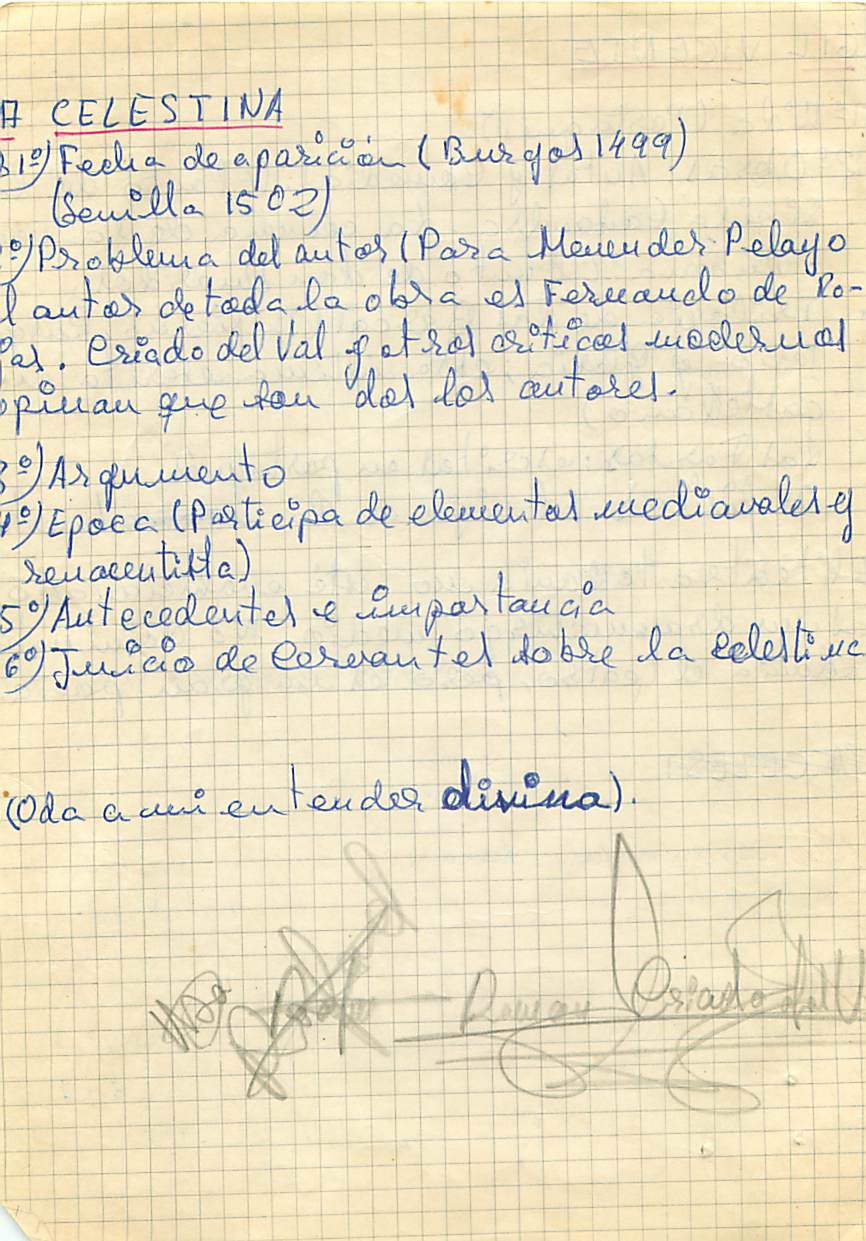 A CELESTINA
1º) Fecha de aparición (Burgos 1499)
(Sevilla 1502)
º) Problema del autor (Para Menender Pelayo
l autor de toda la obra es Fernando de Ro-
jas. Criado del Val y otros críticos modernos
opinan que son dos los autores.
3º) Argumento
4º) Epoca (Participa de elementos mediavales y
renacentista)
5º) Antecedentes e importancia
6º) Juicio de Cervantes sobre la celestina
(Oda a mi entender divina).
Criado del V